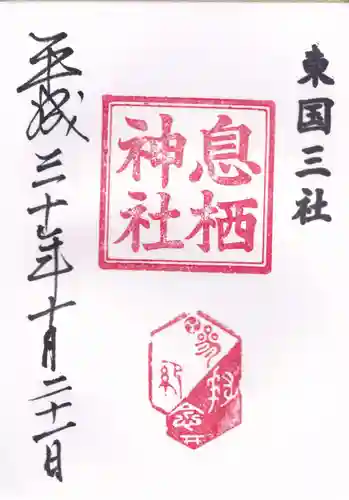 東国三社
息栖
神社
平成三十年十月二十一日